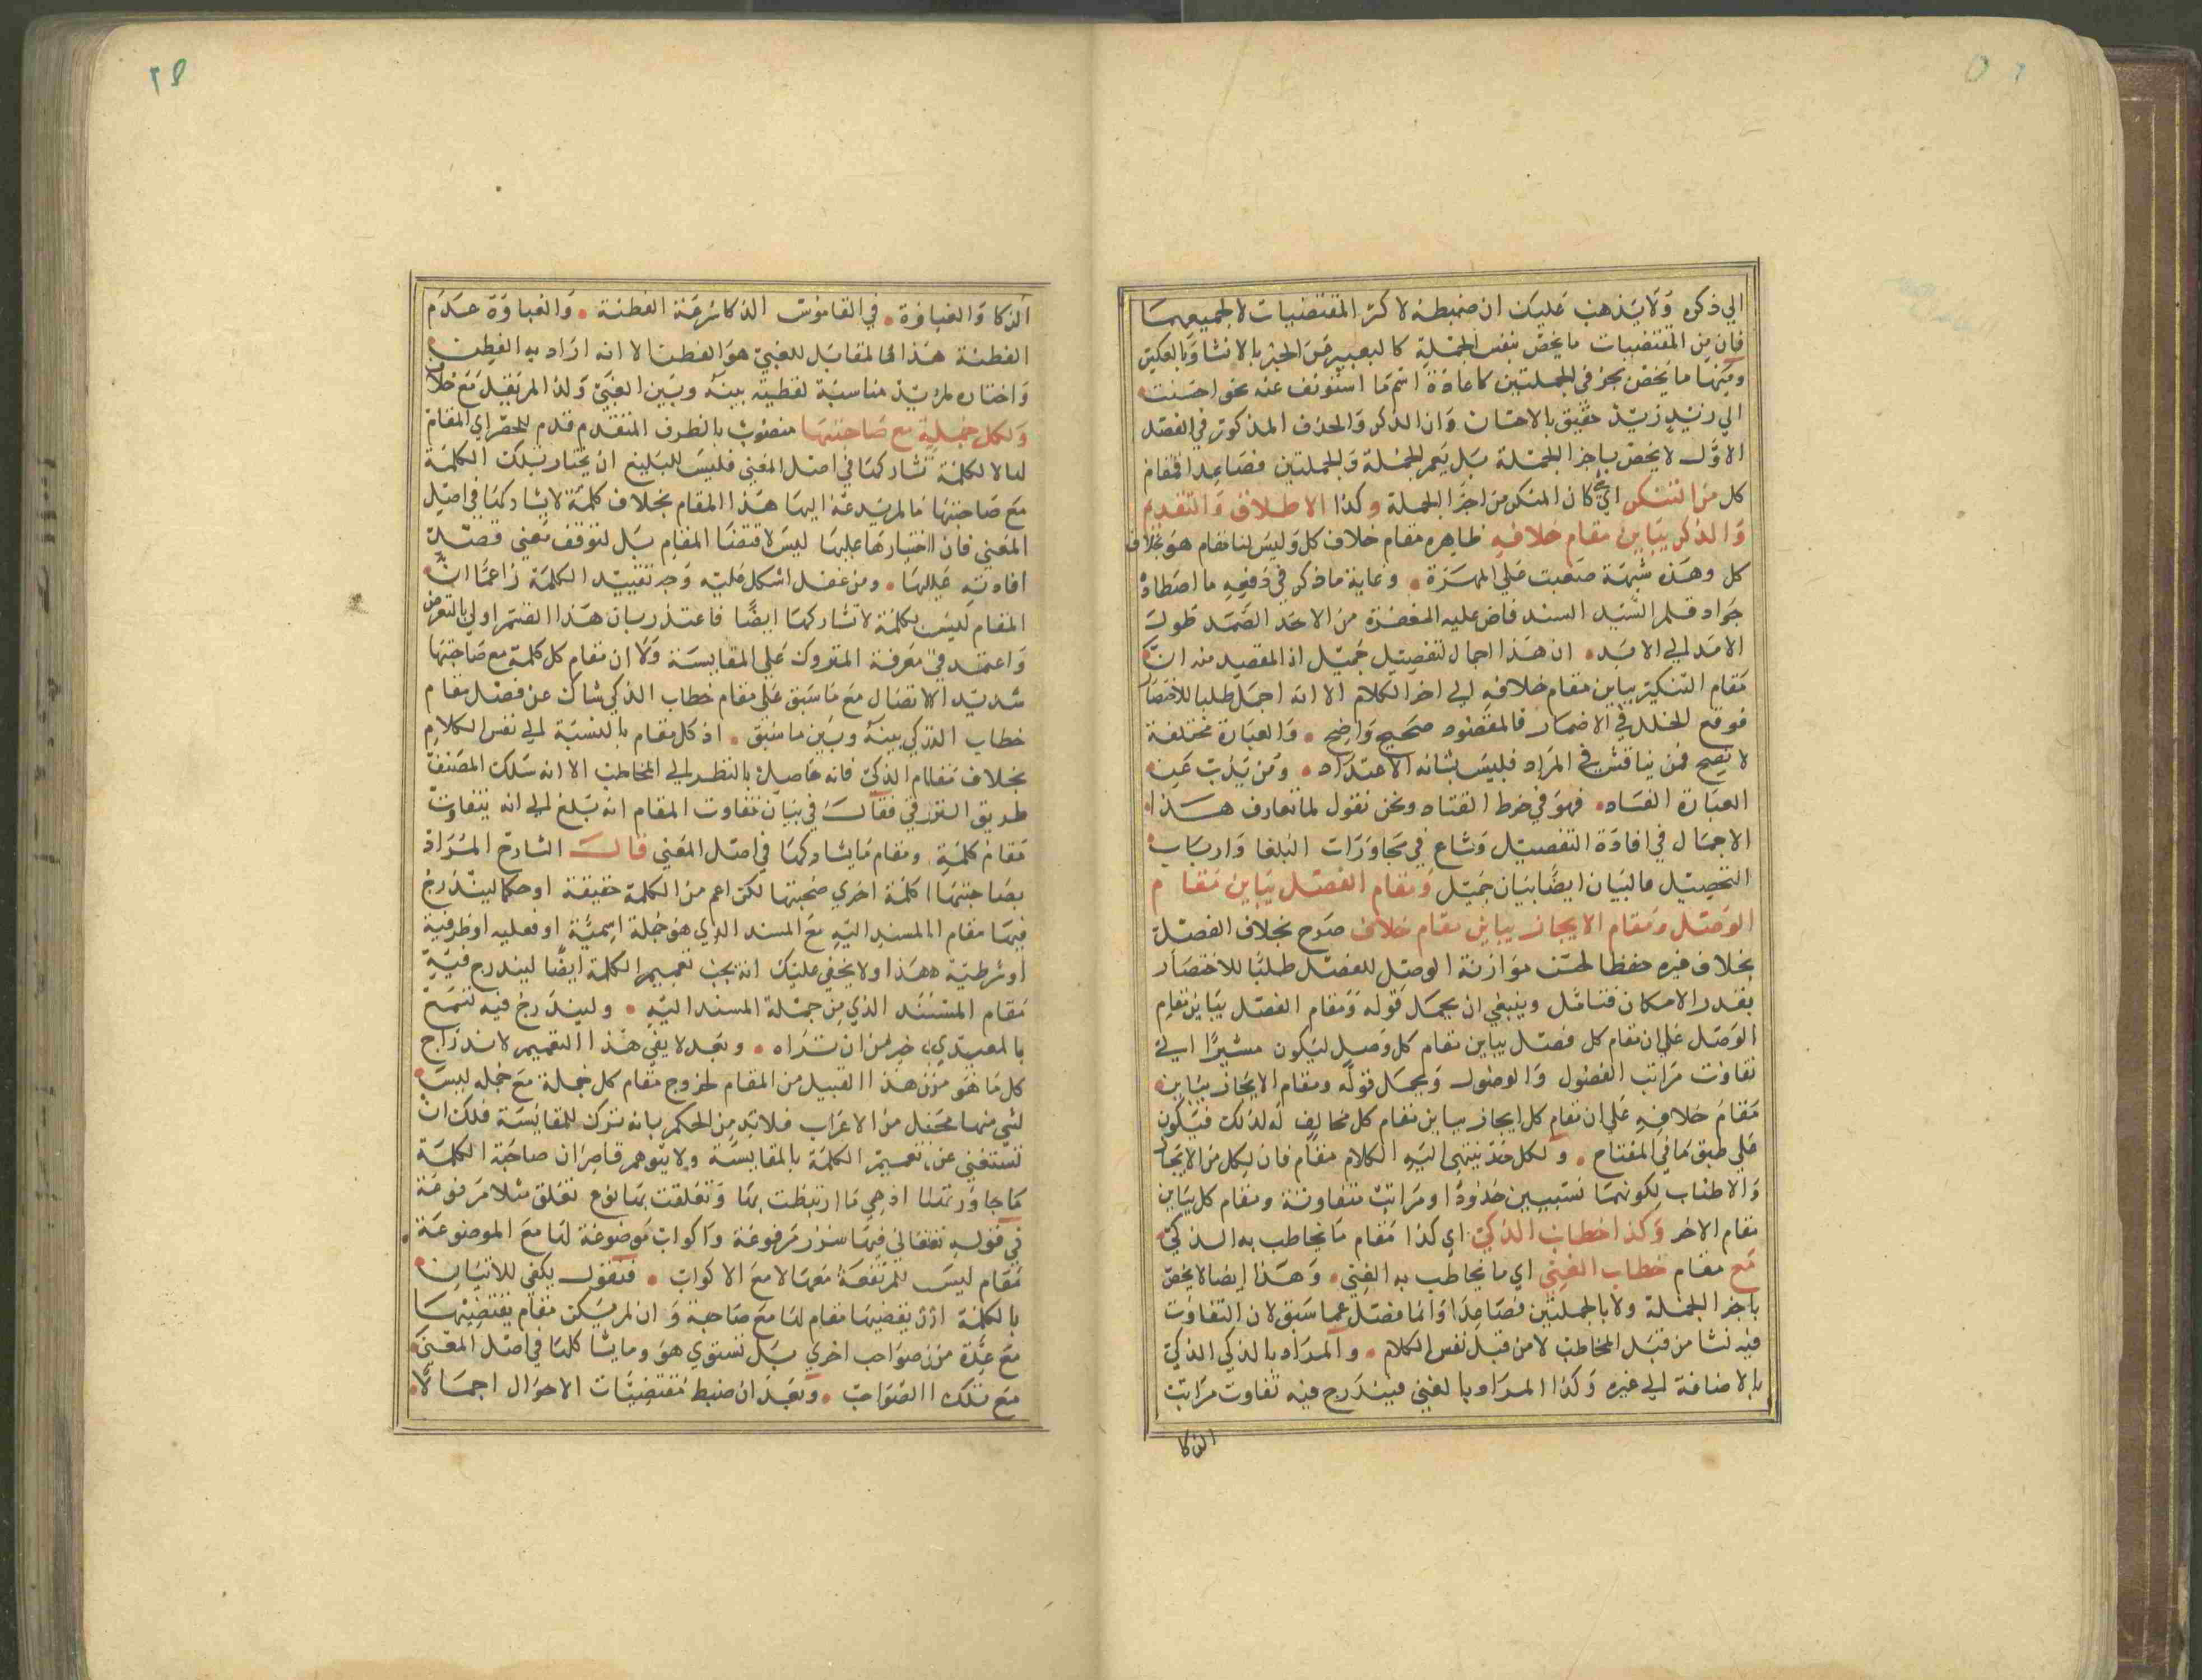 الي ذكره ولا يذهب عليك ان ضبطه لاكثر المقتضيات لا لجميعها
فان من المقتضيات ما يخص بنفس الجملة كالتعبير عن الخبر بالانشا وبالعكس
ومنها ما يخص بجز في الجملتين كاعادة اسم ما استونف عنه نحو احسنت
الي زيد زيد حقيق بالاحسان وان الذكر والحذف المذكور في الفصل
الاول لا يخص باجزا الجملة بل يعم الجملة والجملتين فصاعدا فمقام
كل من التنكير اي كان المنكر من اجزا الجملة وكذا الاطلاق والتقديم
والذكر يباين مقام خلافه ظاهره مقام خلاف كل وليس لنا مقام هو بخلاف
كل وهذه شبهة صعبت علي المهرة وغاية ما ذكر في دفعه ما اصطاده
جواد قلم السيد السند فاض عليه المغفرة من الاحد الصمد طول
الامد الي الابد ان هذا اجمال لتفصيل جميل اذ المقصد منه ان
مقام التنكير يباين مقام خلافه الي اخر الكلام الا انه اجمل طلبا للاختصار
فوقع الخلل في الاضمار فالمقصود صحيح واضح والعبارة مختلفة
لا تصح فمن يناقش في المراد فليس بشانه الاعتداد ومن يذب عن
العبارة الفساد فهو في خرط القتاد ونحن نقول لما تعارف هذا
الاجمال في افادة التفصيل وشاع في محاورات البلغا وارباب
التحصيل فالبيان ايضا بيان جميل ومقام الفصل يباين مقام
الوصل ومقام الايجاز يباين مقام خلافه صرح بخلاف الفصل
بخلاف غيره حفظا لحسن موازنة الوصل للفصل طلبا للاختصار
بقدر الامكان فتامل وينبغي ان يحمل قوله ومقام الفصل يباين مقام
الوصل علي ان مقام كل فصل يباين مقام كل وصل ليكون مشيرا الي
تفاوت مراتب الفصول والوصول ويحمل قوله ومقام الايجاز يباين
مقام خلافه علي ان مقام كل ايجاز يباين مقام كل مخالف له لذلك فيكون
علي طبق ما في المفتاح ولكل حد ينتهي اليه الكلام مقام فان لكل من الايجاز
والاطناب لكونهما نسبيين حدودا ومراتب متفاوتة ومقام كل يباين
مقام الاخر وكذا خطاب الذكي اي كذا مقام ما يخاطب به الذكي
مع مقام خطاب الغبي اي ما يخاطب به الغبي وهذا ايضا لا يخص
باجزا الجملة ولا بالجملتين فصاعدا وانما فصل عما سبق لان التفاوت
فيه نشا من قبل المخاطب لا من قبل نفس الكلام والمراد بالذكي الذكي
بالاضافة الي غيره وكذا المراد بالغبي فيندرج فيه تفاوت مراتب
الذكا
الذكا والغباوة في القاموس الذكا سرعة الفطنة والغباوة عدم
الفطنة هذا فالمقابل للغبي هو الفطن الا انه اراد به الفطن
واختاره لمزيد مناسبة لفظية بينه وبين الغبي ولذا لم يقل مع خلافه
ولكل كلمة مع صاحبتها منصوب بالظرف المتقدم قدم للحصر اي المقام
لها لا لكلمة تشاركها في اصل المعني فليس للبليغ ان يختار بتلك الكلمة
مع صاحبتها فالمزيد عنه اليها هذا المقام بخلاف كلمة لا يشاركها في اصل
المعني فان اختيارها عليها ليس لاقتضا المقام بل لتوقف معني قصد
افادته عليها ومن غفل اشكل عليه وجه تقييد الكلمة زاعما ان
المقام ليس لكلمة لا تشاركها ايضا فاعتذر بان هذا القسم اولي بالتعرض
واعتمد في معرفة المتروك علي المقايسة ولا ان مقام كل كلمة مع صاحبتها
شديد الاتصال مع ما سبق علي مقام خطاب الذكي شاك عن فصل مقام
خطاب الذكي بينه وبين ما سبق اذ كل مقام بالنسبة الي نفس الكلام
بخلاف مقام الذكي فانه حاصل بالنظر الي المخاطب الا انه سلك المصنف
طريق الترقي فقال في بيان تفاوت المقام انه بلغ الي انه يتفاوت
مقام كلمة ومقام ما يشاركها في اصل المعني قال الشارح المراد
بصاحبتها كلمة اخري صحبتها لكن اعم من الكلمة حقيقة او حكما ليندرج
فيها مقام المسند اليه مع المسند الذي هو جملة اسمية او فعليه او ظرفية
او شرطية هذا ولا يخفي عليك انه يجب تعميم الكلمة ايضا ليندرج فيه
مقام المسند الذي من جملة المسند اليه وليندرج فيه تسمع
بالمعيدي خير من ان تراه وبعد لا يفي هذا التعميم لاندراج
كل ما هو من هذا القبيل من المقام لخروج مقام كل جملة مع جملة ليس
لشي منها محل من الاعراب فلا بد من الحكم بانه ترك للمقايسة فلك ان
تستغني عن تعميم الكلمة بالمقايسة ولا يتوهم قاصر ان صاحبة الكلمة
ما جاورتها اذ هي ما ارتبطت بها وتعلقت بها نوع تعلق مثلا مرفوعة
في قوله تعالي فيها سرر مرفوعة واكواب موضوعة لها مع الموضوعة
مقام ليس للمرتفعة معها لا مع الاكواب فنقول يكفي للاتيان
بالكلمة ان يقتضيها مقام لها مع صاحبة وان لم يكن مقام يقتضيها
مع عدة من صواحب اخري بل تستوي هو وما يشاكلها في اصل المعني
مع تلك الصواحب وبعد ان ضبط مقتضيات الاحوال اجمالا